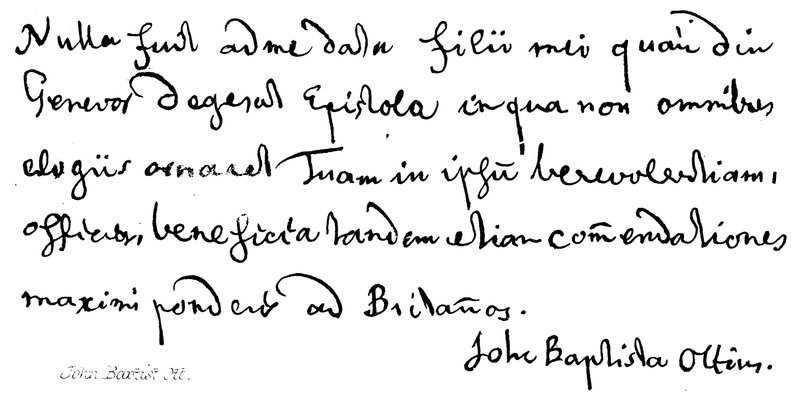 Nulla fuit ad me data filii mei quãdiu
Genevæ degerat Epistola in qua non omnibus
elogiis ornaret Tuam in ipsũ benevolentiam,
officia, beneficia tandem etiam com̃endationes
maximi ponderis ad Britan̄os.
Joh: Baptista Ottius.
John Baptist Ott.